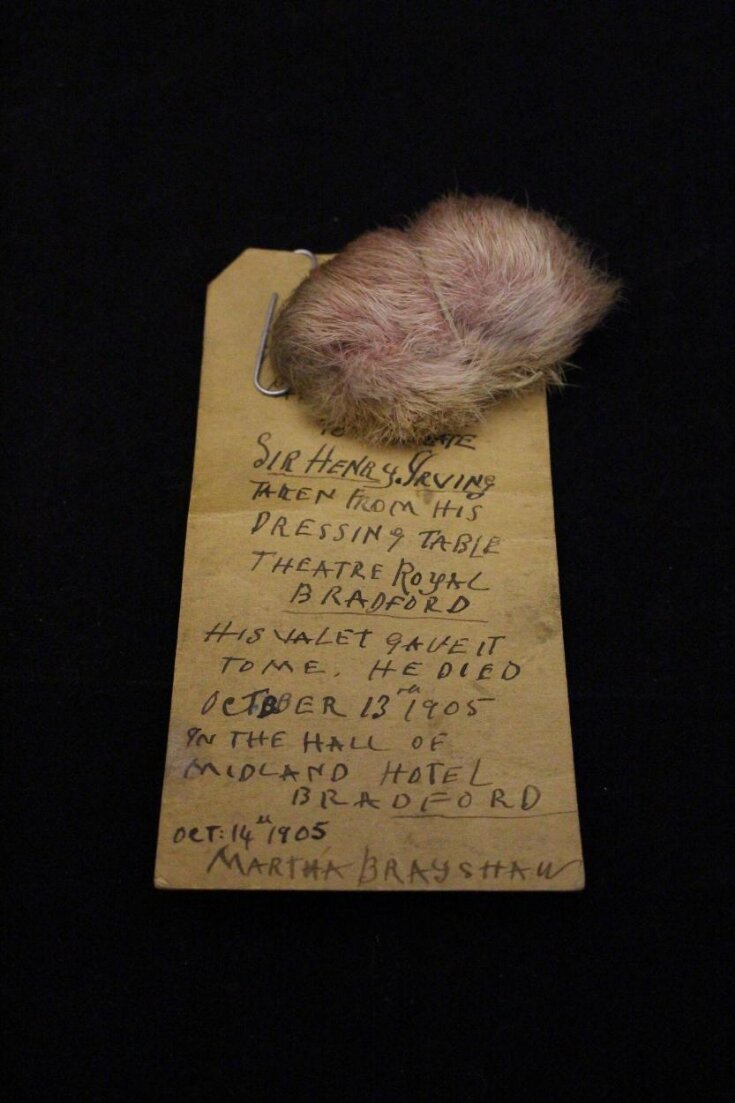 SIR HENRY IRVING
TAKEN FROM HIS
DRESSING TABLE
THEATRE ROYAL
BRADFORD
HIS VALET GAVE IT
TO ME. HE DIED
OCTOBER 13TH 1905
IN THE HALL OF
MIDLAND HOTEL
BRADFORD
OCT: 14TH 1905
MARTHA BRAYSHAW